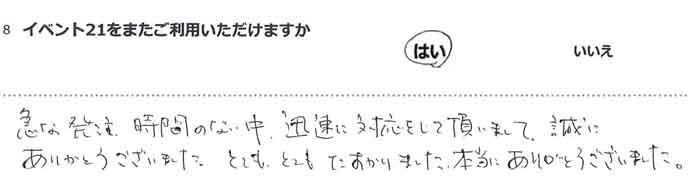 8 イベント21をまたご利用いただけますか
はい いいえ
急な発注、時間のない中、迅速に対応をして頂いまして、誠に
ありがとうございました。とても、とても たすかりました。本当に ありがとうございました。